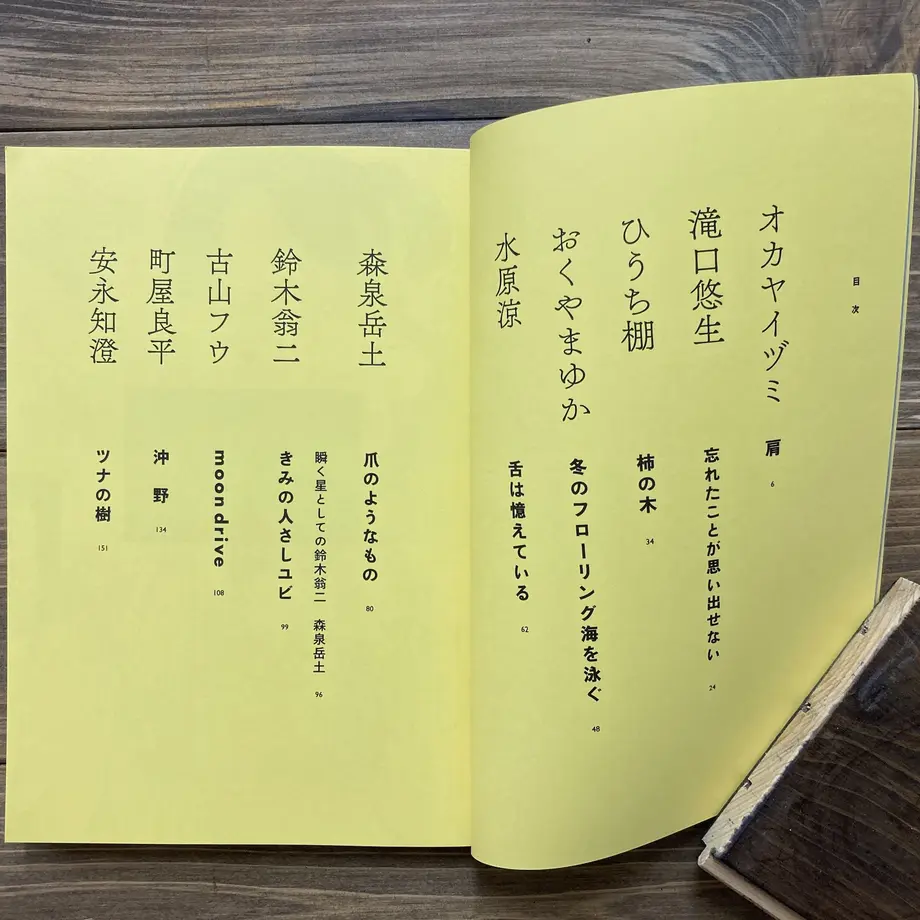 目次
オカヤイヅミ 肩 6
滝口悠生 忘れたことが思い出せない 24
ひうち棚 柿の木 34
おくやまゆか 冬のフローリング海を泳ぐ 48
水原涼 舌は憶えている 62
森泉岳土 爪のようなもの 80
瞬く星としての鈴木翁二 森泉岳土 96
鈴木翁二 きみの人さしユビ 99
古山フウ moon drive 108
町屋良平 沖野 134
安永知澄 ツナの樹 151